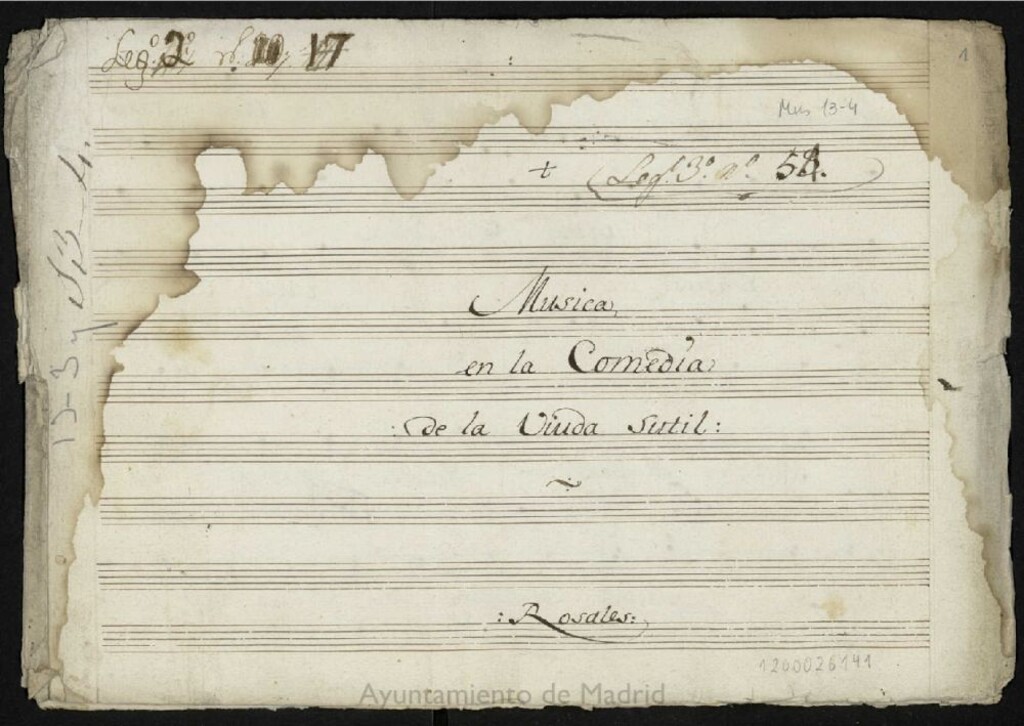 Leg.º 2º 17
1
Mus 13-4
+ Leg.º 3.º n.º 54.
13-3 y 13-4.
Musica
en la Comedia
: de la Viuda Sutil:
~
: Rosales:
1200026141
Ayuntamiento de Madrid